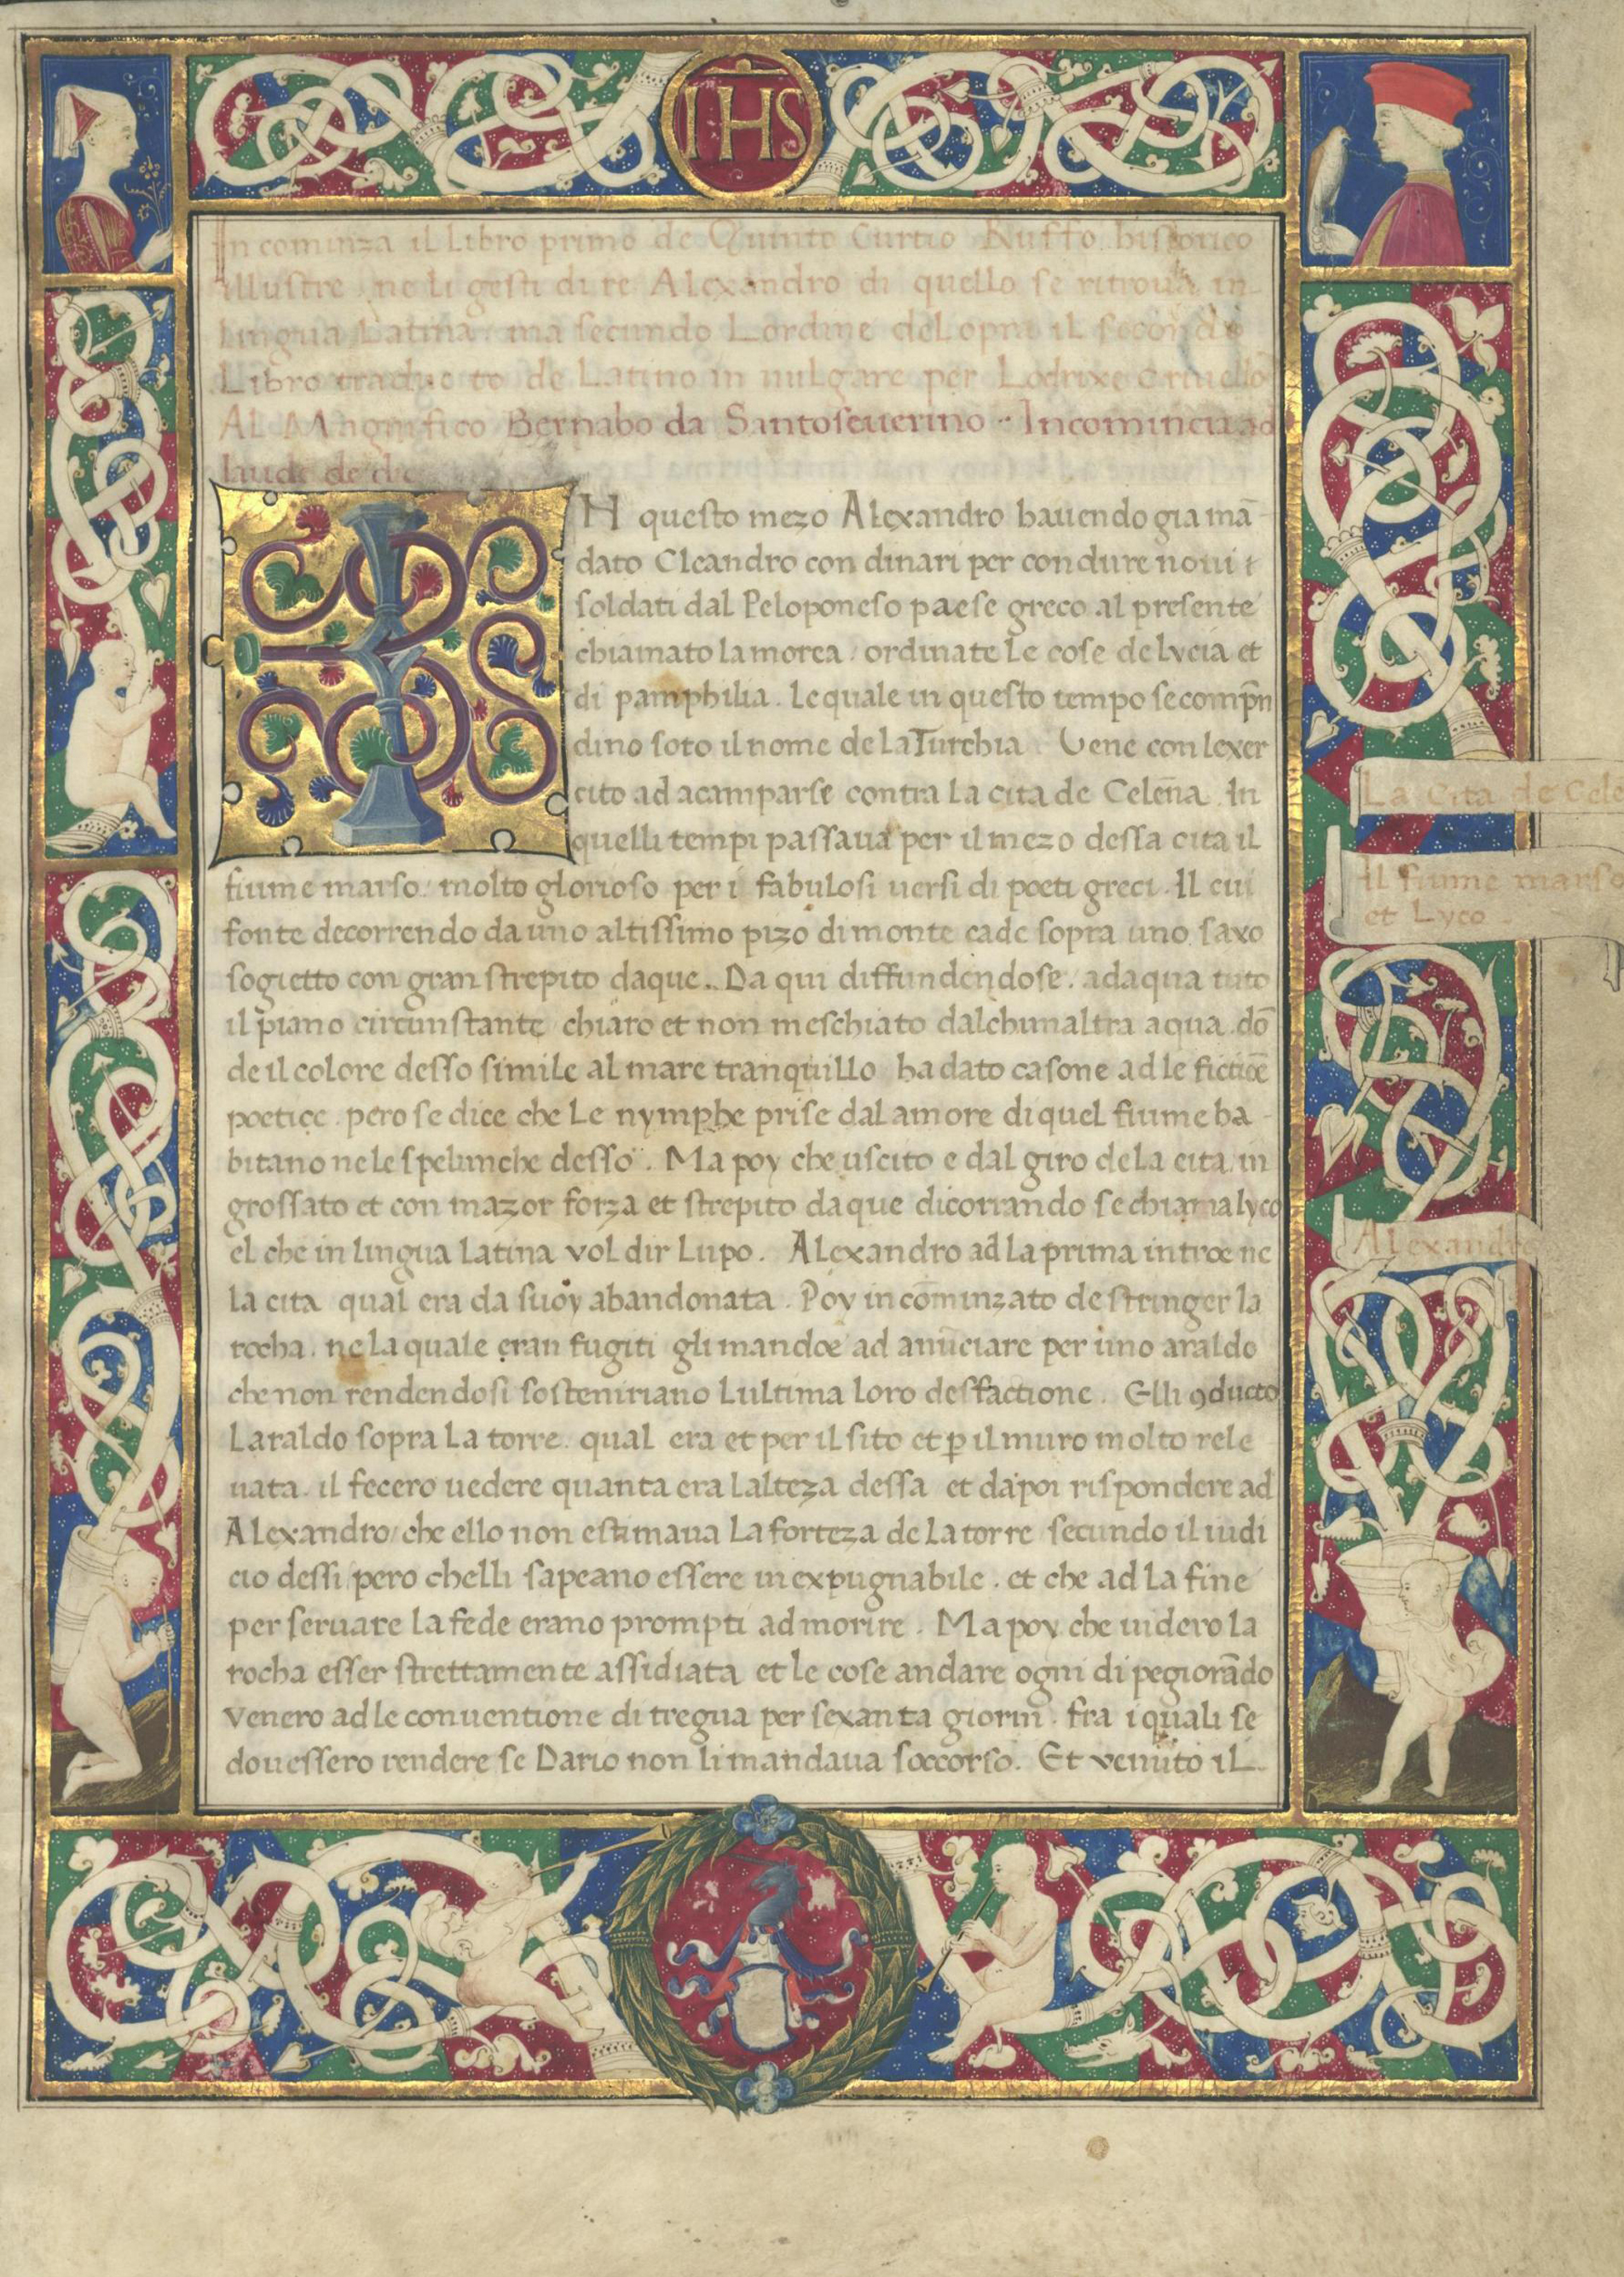 IHS
In cominza il Libro primo de Quinto Curtio Ruffo historico
illustre ne li gesti di re Alexandro di quello se ritroua in
lingua Latina. ma secundo Lordine del opra il secondo
Libro traducto de Latino in uulgare per Lodrixe Criuello
AL Magnifico Bernabo da Santoseuerino. Incomincia ad
laude de dio
IN questo mezo Alexandro hauendo gia mā
dato Cleandro con dinari per condure noui
soldati dal Peloponeso paese greco al presente
chiamato la morea. ordinate Le cose de lycia et
di pamphilia. Le quale in questo tempo se comp̄n
dino soto il nome de la Turchia. Vene con lexer
cito ad acamparse contra La cita de Celēna. In
quelli tempi passaua per il mezo dessa cita il
fiume marso. molto glorioso per i fabulosi uersi di poeti greci. Il cui
fonte decorrendo da uno altissimo pizo di monte cade sopra uno saxo
sogietto con gran strepito daque. Da qui diffundendose. adaqua tuto
il piano circunstante chiaro et non meschiato dalchunaltra aqua. dō
de il colore desso simile al mare tranquillo ha dato casone ad le fictiōe
poetice. pero se dice che Le nymphe prise dal amore di quel fiume ha
bitano ne le spelunche desso. Ma poy che uscito e dal giro de la cita in
grossato et con mazor forza et strepito daque dicorrando se chiama lyco
el che in lingua Latina vol dir Lupo. Alexandro ad la prima introe ne
la cita qual era da suoy abandonata. Poy incōminzato de stringer la
rocha. ne la quale eran fugiti gli mandoe ad anūciare per uno araldo
che non rendendosi sosteniriano Lultima loro desfactione. Elli ꝯducto
Laraldo sopra La torre. qual era et per il sito et ꝑ il muro molto rele
uata. il fecero uedere quanta era Lalteza dessa et dapoi rispondere ad
Alexandro che ello non estimaua La forteza de La torre secundo il iudi
cio dessi pero chelli sapeano essere inexpugnabile. et che ad La fine
per seruare la fede erano prompti ad morire. Ma poy che uidero la
rocha esser strettamente assidiata et le cose andare ogni di pegiorādo
venero ad le conuentione di tregua per sexanta giorni. fra i quali se
douessero rendere se Dario non li mandaua soccorso. Et venuto iL
La Cita de Cele
Il fiume marso
et Lyco
Alexandro